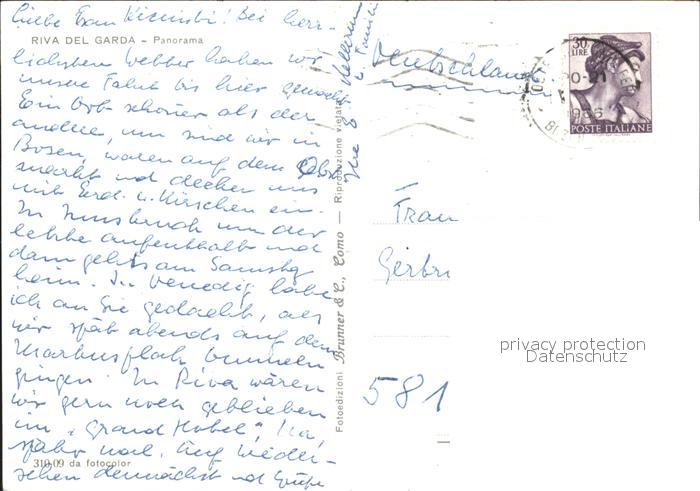 Liebe Frau Kicinski! Bei herr-
RIVA DEL GARDA - Panorama
lichstem Wetter haben wir
unsere Fahrt bis hier gemacht
Ein Ort schöner als der
andere, nun sind wir in
Bozen, waren auf dem Obst
markt und decken uns
mit Erdb. u. Kirschen ein.
In Innsbruck nun der
letzte Aufenthalt und
dann gehts am Samstag
heim. In Venedig habe
ich an Sie gedacht, als
wir spät abends auf dem
Markusplatz bummeln
gingen. In Riva wären
wir gern noch geblieben
im "Grand Hotel", Na,
später mal. Auf Wieder-
sehen demnächst und Grüße
310-09 da fotocolor
Ihre
u. Familie
Fotoedizioni Brunner & C., Como — Riproduzione vietata
Deutschland
30 LIRE
20-21
1966
POSTE ITALIANE
Frau
Gertru
581
privacy protection
Datenschutz